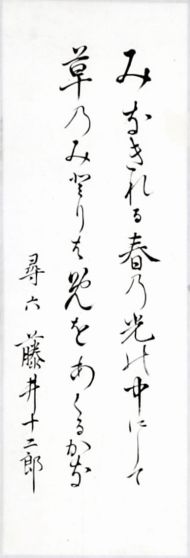 みなぎれる春乃光の中にして
草乃みどりは眼をあくるかな
尋六 藤井十二郎